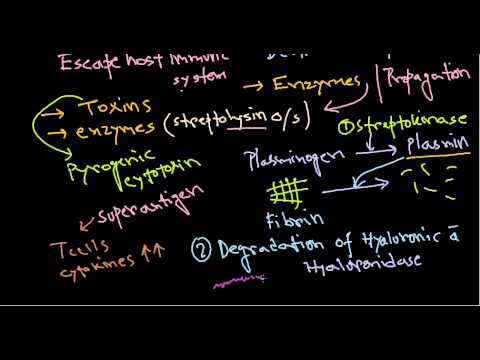 Escape host immune
system
→ Enzymes
Propagation
→ Toxins
→ enzymes (streptolysin o/s)
① streptokinase
Pyrogenic
cytotoxin
Plasminogen → Plasmin
Superantigen
Fibrin
T cells
cytokines ↑↑
② Degradation of Hyaluronic a
Hyaluronidase